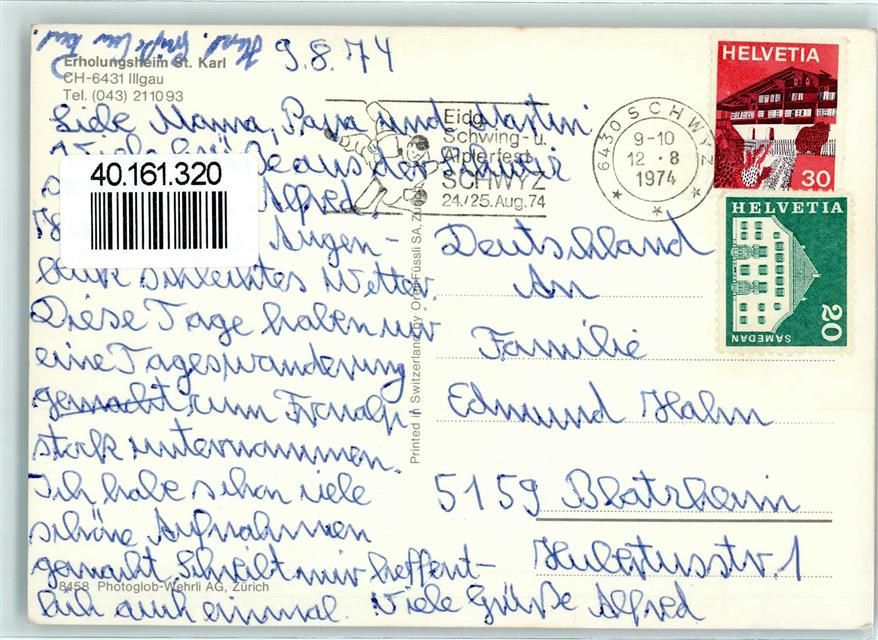 Herzl. Grüße
9.8.74
Erholungsheim St. Karl
CH-6431 Illgau
Tel. (043) 211093
Liebe Mama, Papa und Martin
Viele Grüße aus der Schweiz
Alfred.
Augen-
blick schlechtes Wetter.
Diese Tage haben wir
eine Tageswanderung
gemacht zum Fronalp-
stock unternommen.
Ich habe schon viele
schöne Aufnahmen
gemacht. Schreibt mir hoffent-
lich auch einmal. Viele Grüße Alfred
8458 Photoglob-Wehrli AG, Zürich
40.161.320
Eidg.
Schwing- u.
Älplerfest
SCHWYZ
24./25. Aug. 74
6430 SCHWYZ
9-10
12.8
1974
HELVETIA
30
HELVETIA
20
SAMEDAN
Printed in Switzerland by Orell Füssli SA, Zürich
Deutschland
An
Familie
Edmund Hahn
5159 Blatzheim
Hubertusstr. 1